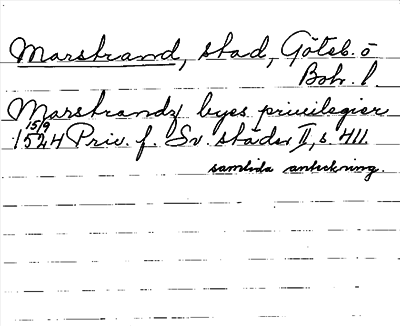 Marstrand, stad, Göteb. o
Boh. l.
Marstrandz byes privilegier
15/9
1524 Priv. f. Sv. städer II, s. 411.
samtida anteckning.